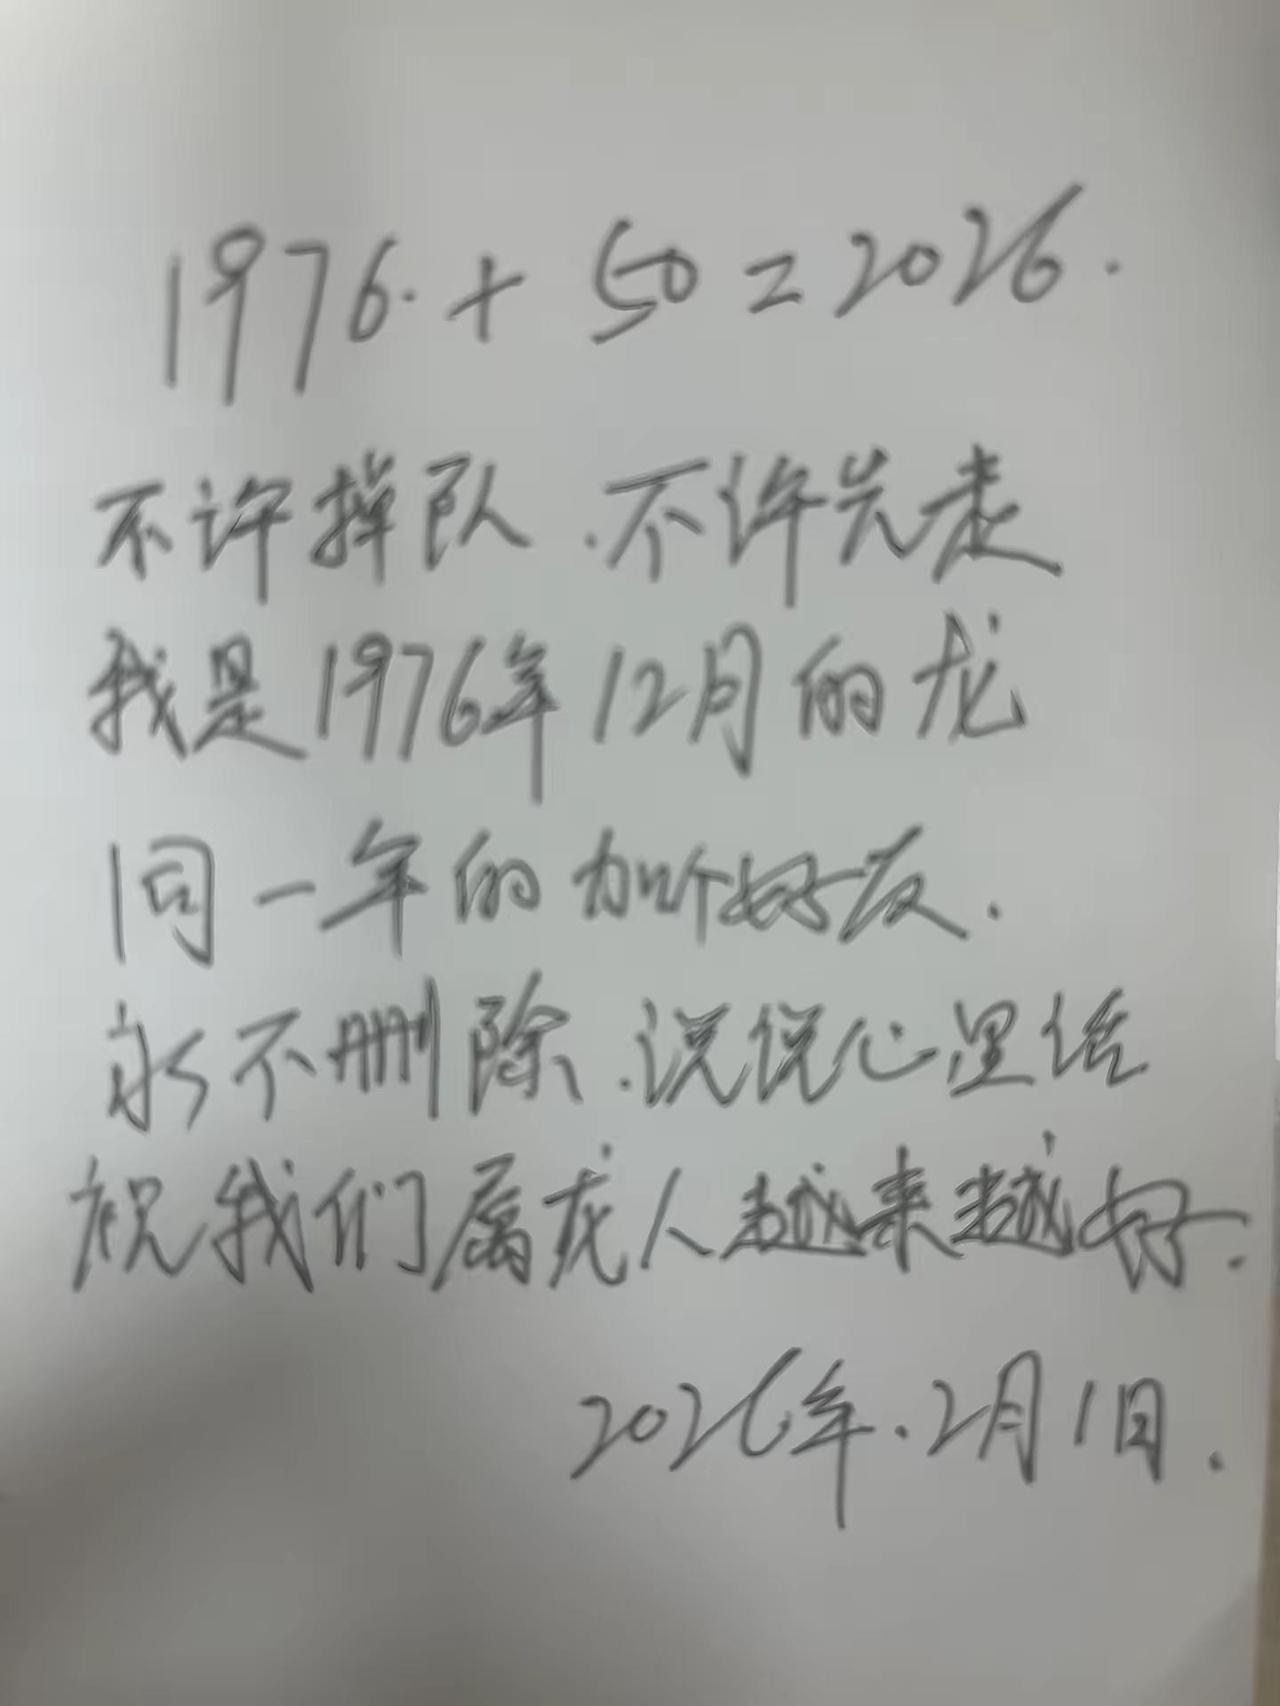 1976.+50=2026.
不许掉队.不许先走
我是1976年12月的龙
同一年的加个好友.
永不删除.说说心里话
祝我们属龙人越来越好.
2026年.2月1日.